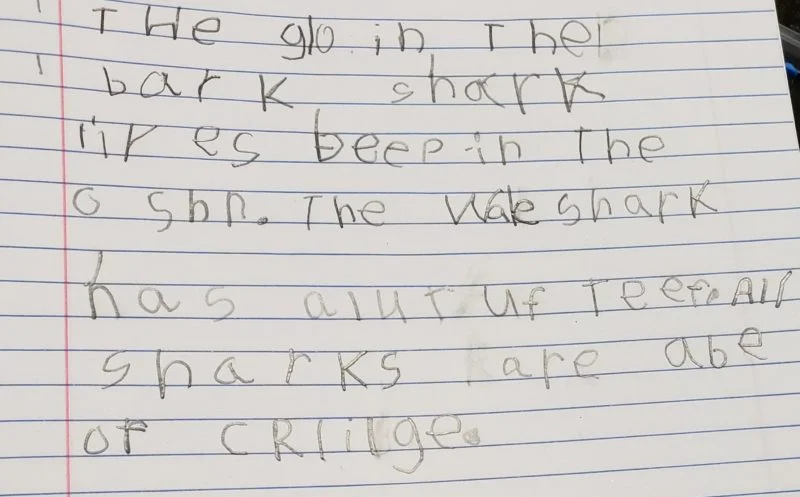 THe glo in Ther
bark shark
lir es beep in The
o shn. The Wale shark
has alut uf Teef. All
sharks are abe
of CRlilge.